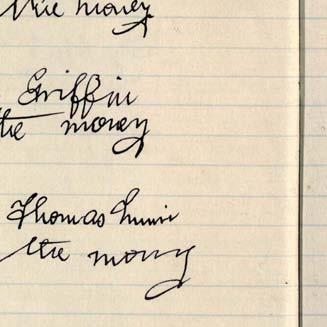 the money
Griffin
the money
Thomas
the money